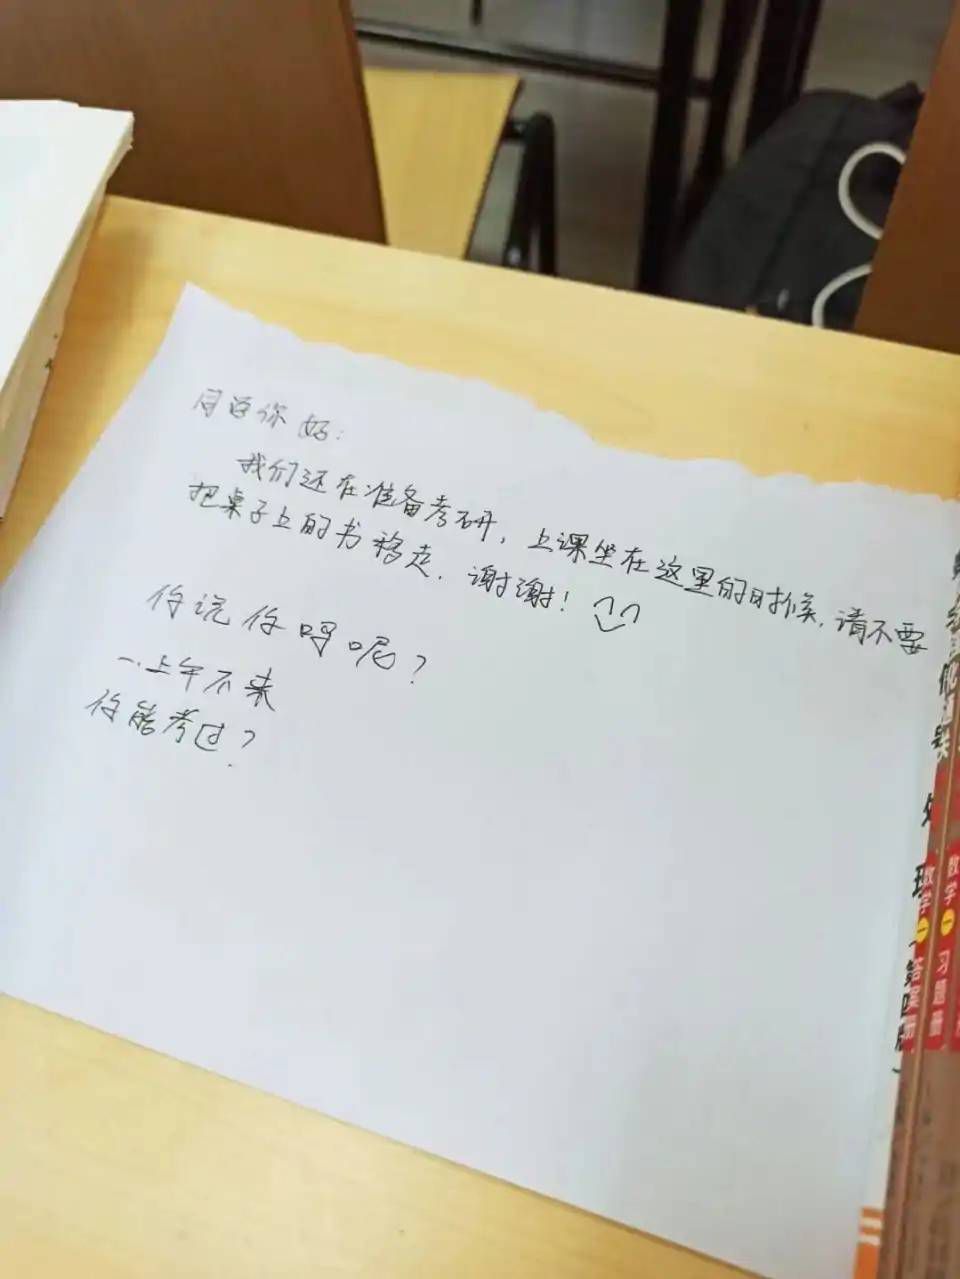 同学你好：
我们还在准备考研，上课坐在这里的时候，请不要
把桌子上的书移走，谢谢！
你说你吗呢？
一上午不来
你能考过？
数学一 习题册
数学一 答案册
（第四版）